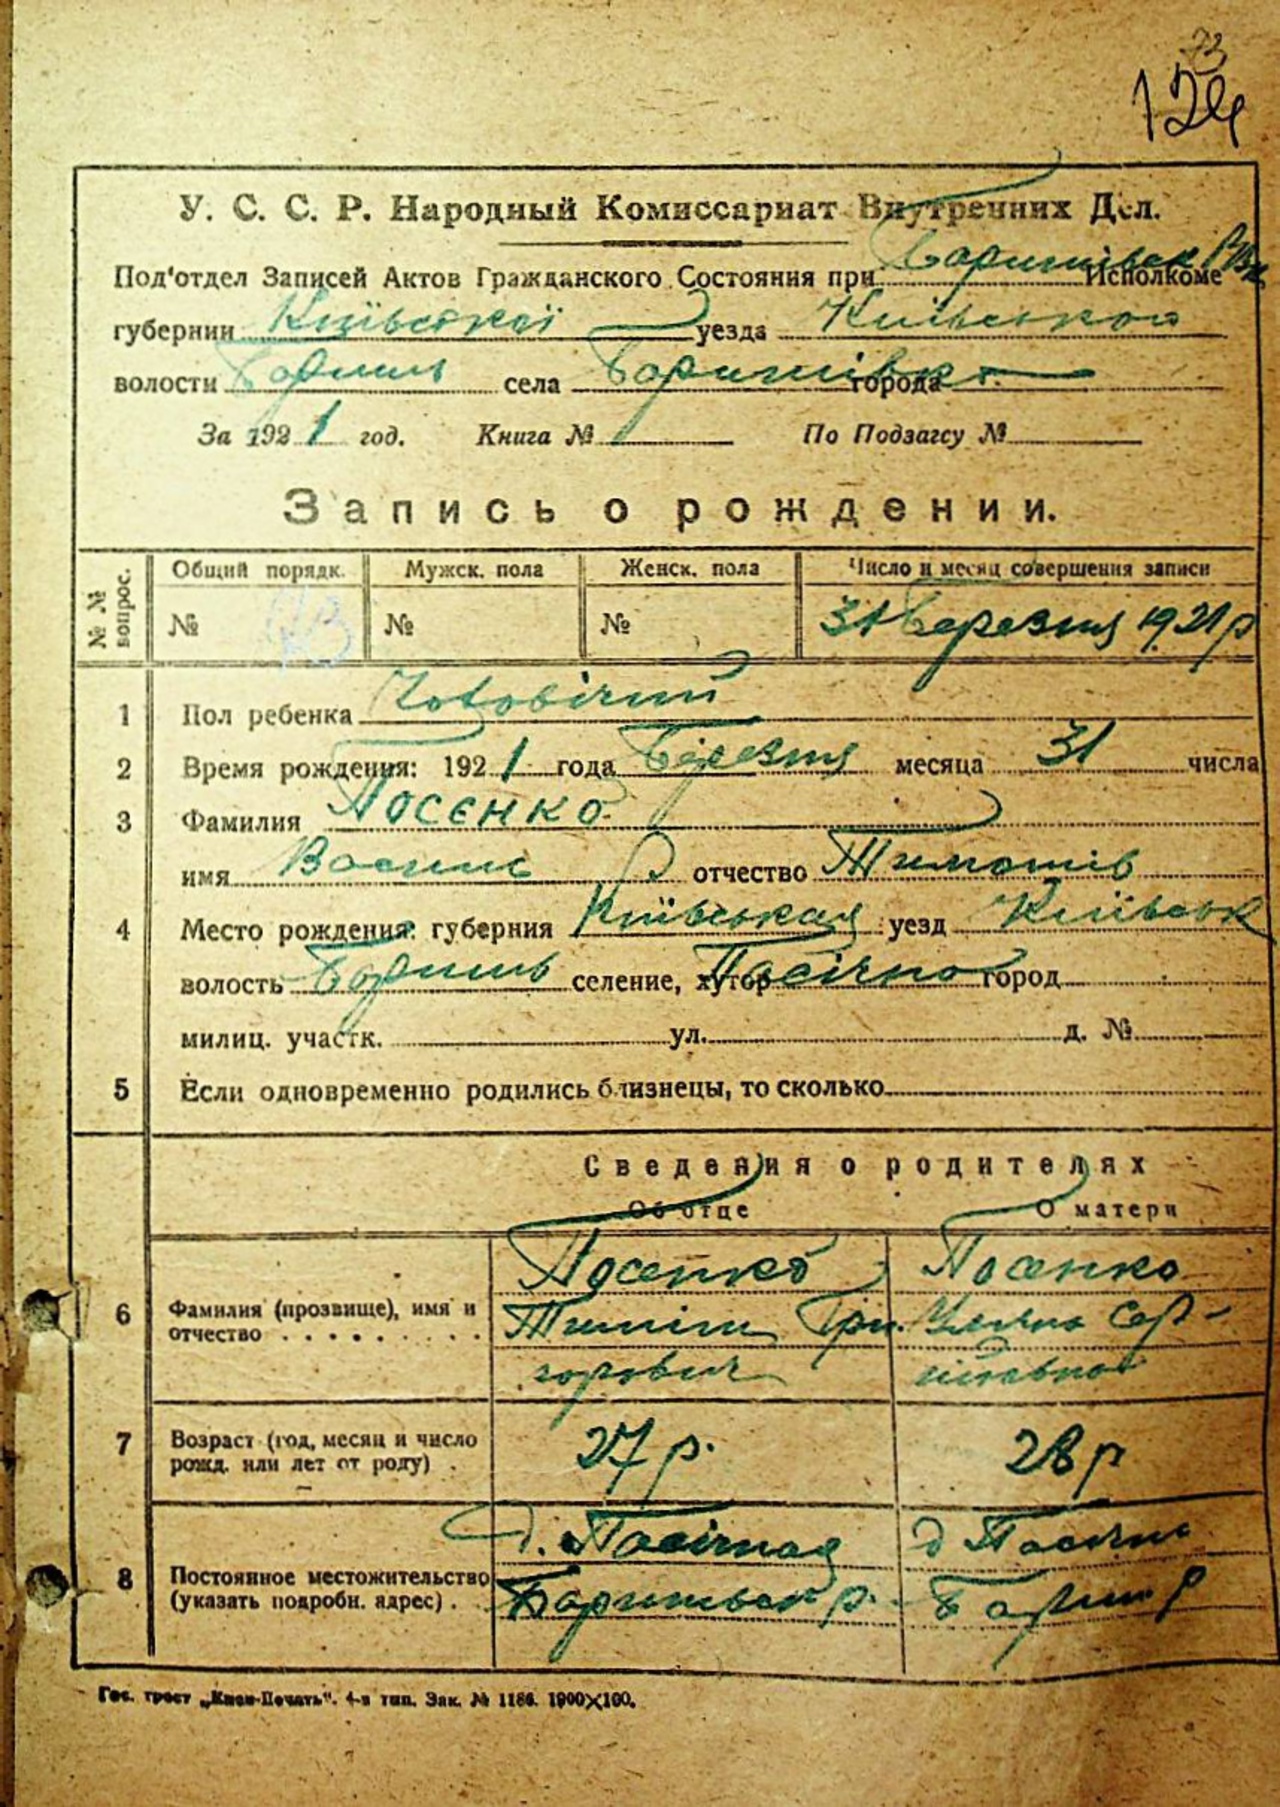 73
124
У. С. С. Р. Народный Комиссариат Внутренних Дел.
Под'отдел Записей Актов Гражданского Состояния при Исполкоме
губернии Київської уезда Київського
волости Бориш села Баришівка города
За 1921 год. Книга № По Подзагсу №
Запись о рождении.
№№ вопрос. Общий порядк. Мужск. пола Женск. пола Число и месяц совершения записи
№ 73 № № 31 Березня 1921 р
1 Пол ребенка Чоловічий
2 Время рождения: 1921 года Березня месяца 31 числа
3 Фамилия Посєнко
имя Василь отчество Тимошів
4 Место рождения: губерния Київськая уезд Київськ
волость Бориш селение, хутор Пасічна город
милиц. участк. ул. д. №
5 Если одновременно родились близнецы, то сколько
Сведения о родителях
Об отце О матери
Посенко Посенко
6 Фамилия (прозвище), имя и Тиміш Гри- Уляна Сер-
отчество . . . . . . . . . . горович
7 Возраст (год, месяц и число 27 р. 28 р
рожд. или лет от роду) .
д. Пасічная д Пасічна
8 Постоянное местожительство
(указать подробн. адрес) . Баришевск р. Бариш р
Гос. трест „Киев-Печать". 4-я тип. Зак. № 1186. 1900×100.